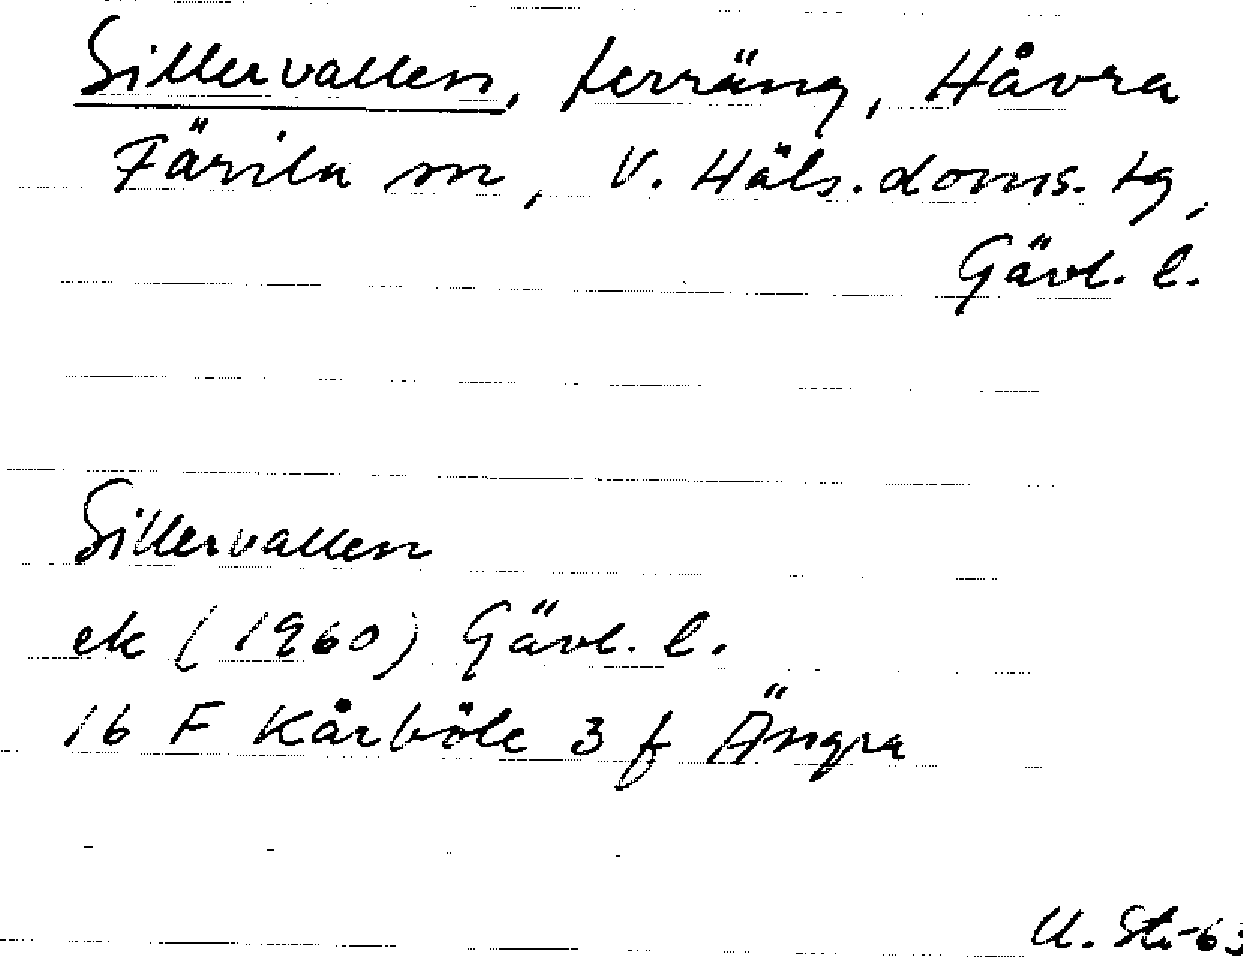 Sillervallen, terräng, Håvra
Färila sn, V. Häls. doms. tg,
Gävl. l.
Sillervallen
ek (1960) Gävl. l.
16 F Kårböle 3 f Ängra
U. Str-63